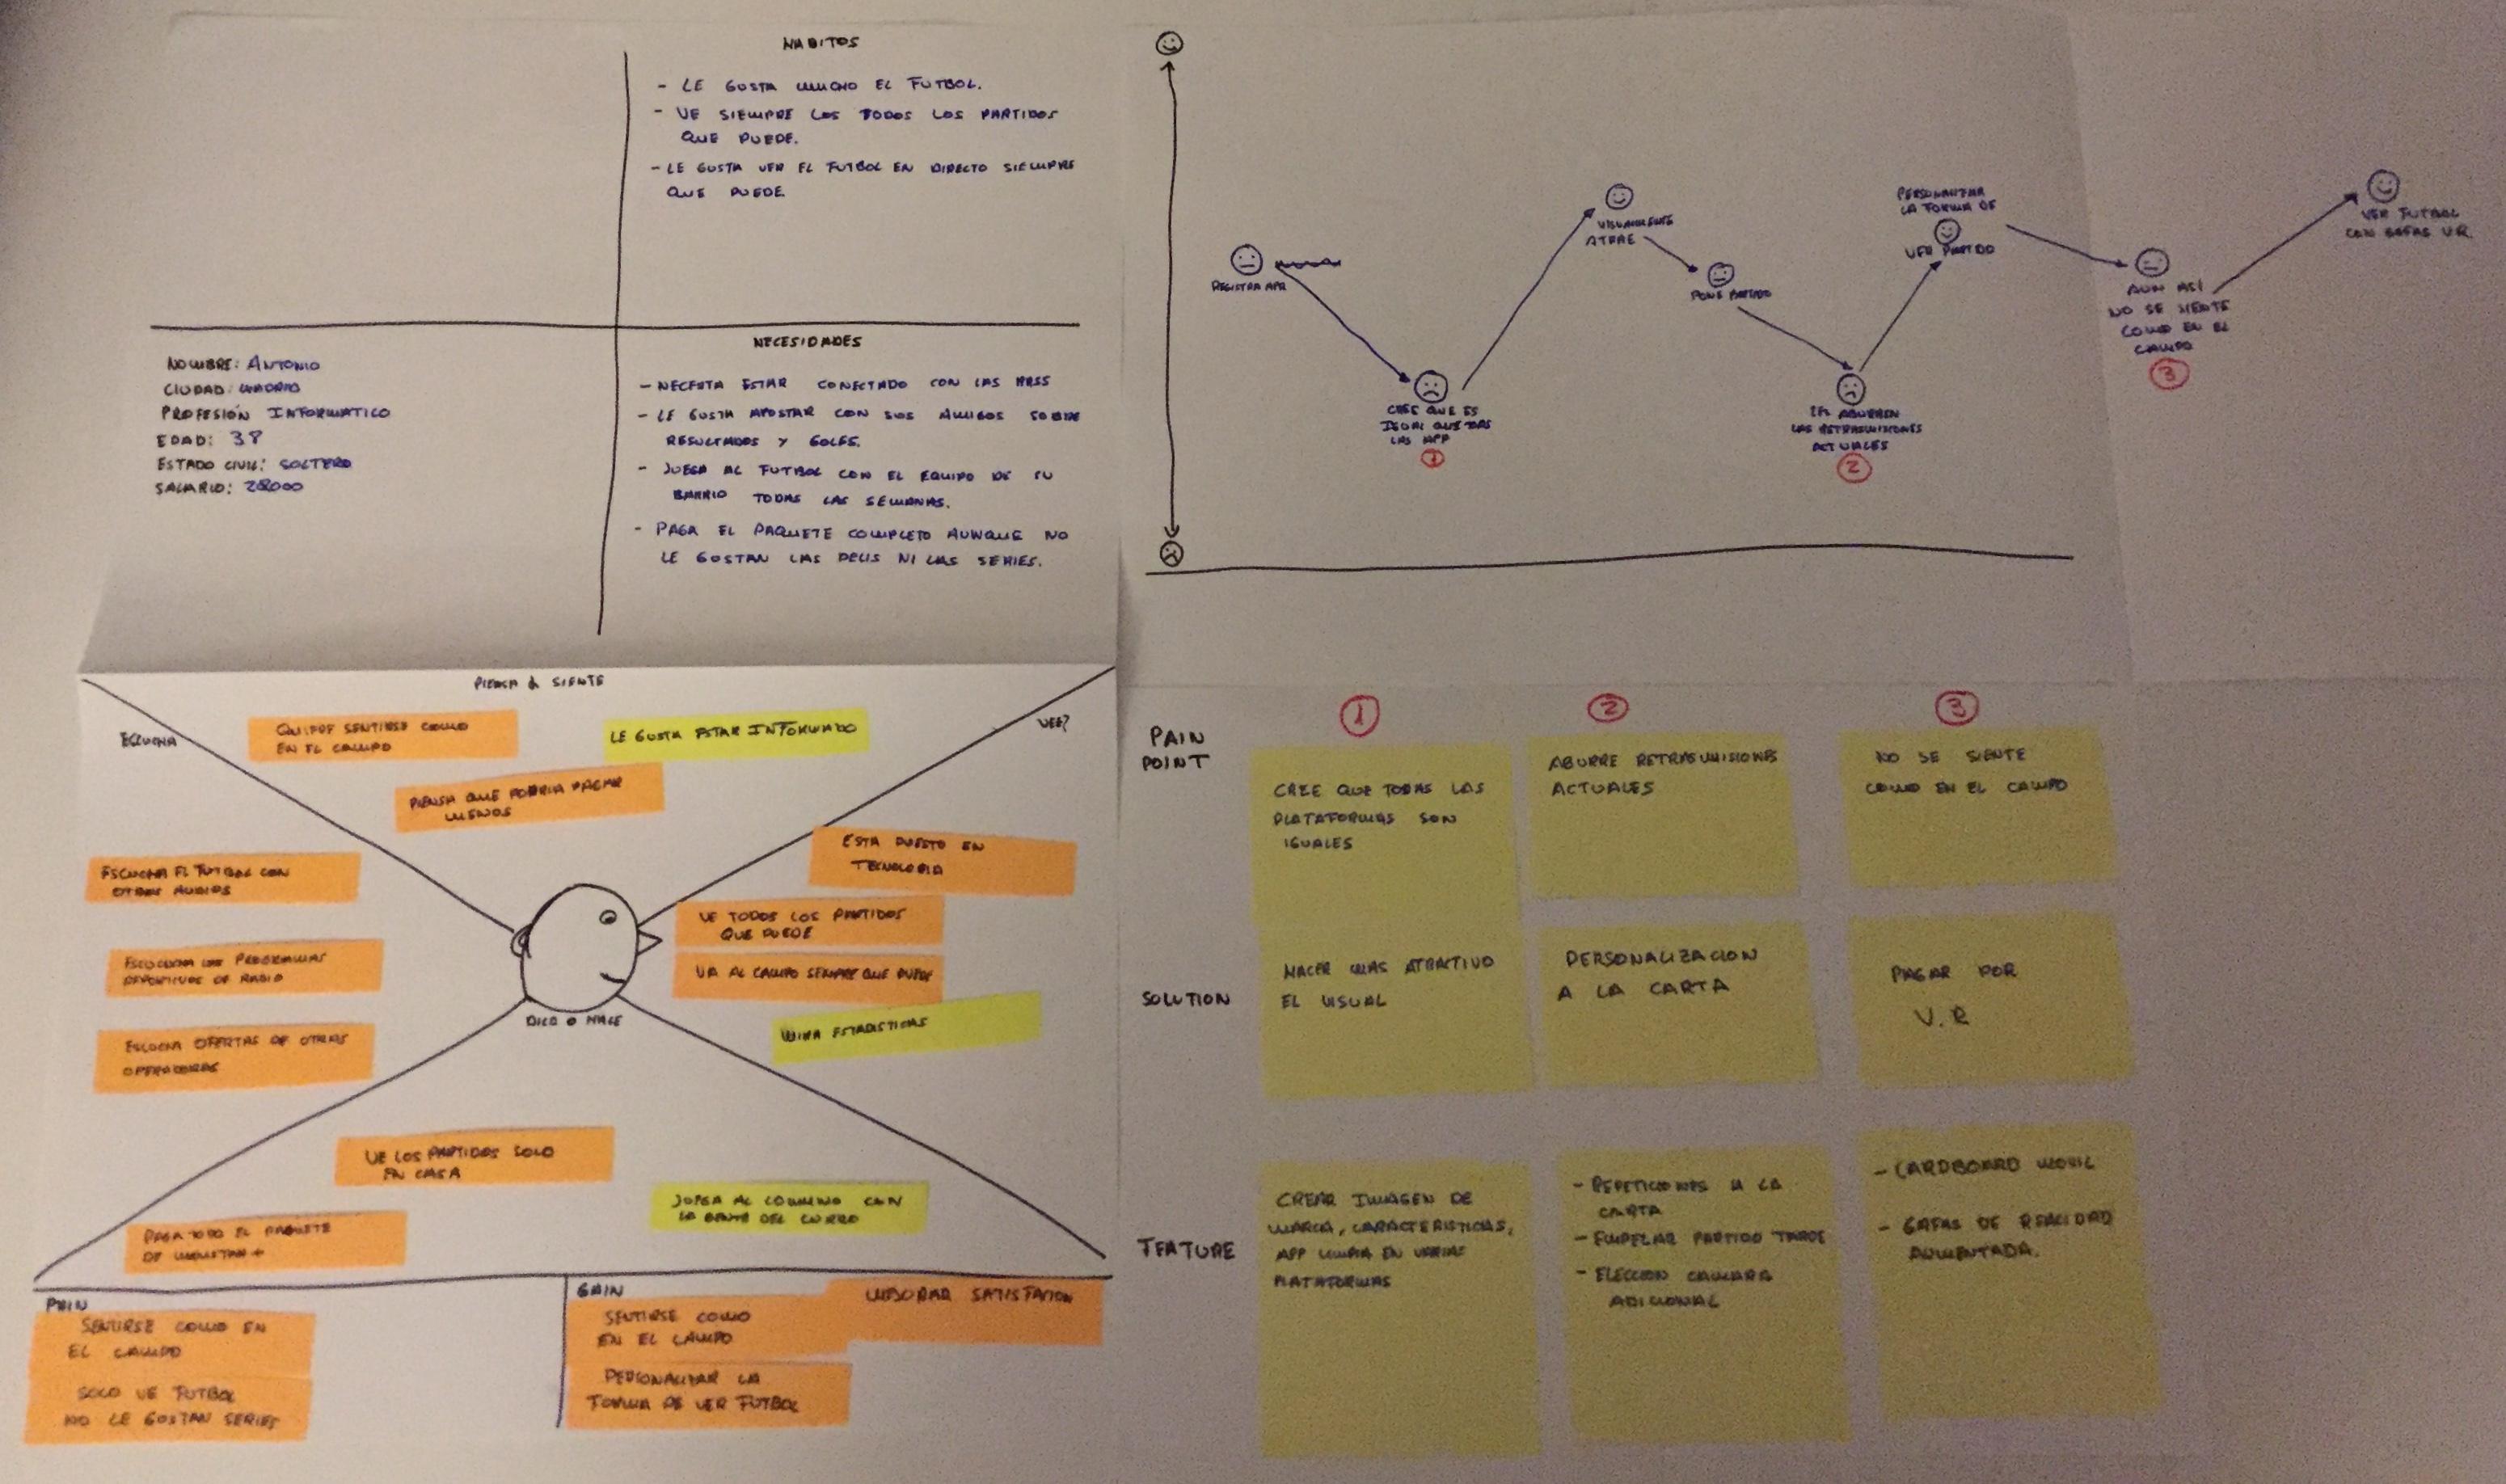 HABITOS
- LE GUSTA MUCHO EL FUTBOL.
- VE SIEMPRE LOS TODOS LOS PARTIDOS
QUE PUEDE.
- LE GUSTA VER EL FUTBOL EN DIRECTO SIEMPRE
QUE PUEDE
NOMBRE: ANTONIO
CIUDAD: MADRID
PROFESIÓN INFORMATICO
EDAD: 38
ESTADO CIVIL: SOLTERO
SALARIO: 28000
NECESIDADES
- NECESITA ESTAR CONECTADO CON LAS RRSS
- LE GUSTA APOSTAR CON SUS AMIGOS SOBRE
RESULTADOS Y GOLES.
- JUEGA AL FUTBOL CON EL EQUIPO DE SU
BARRIO TODAS LAS SEMANAS.
- PAGA EL PAQUETE COMPLETO AUNQUE NO
LE GUSTAN LAS PELIS NI LAS SERIES.
REGISTRA APP
CREE QUE ES
IGUAL QUE TODAS
LAS APP
1
VISUALMENTE
ATRAE
PONE PARTIDO
LE ABURREN
LAS RETRASMISIONES
ACTUALES
2
PERSONALIZAR
LA FORMA DE
VER PARTIDO
AUN ASI
NO SE SIENTE
COMO EN EL
CAMPO
3
VER FUTBOL
CON GAFAS V.R.
PIENSA & SIENTE
QUIERE SENTIRSE COMO
EN EL CAMPO
LE GUSTA ESTAR INFORMADO
PIENSA QUE PODRIA PAGAR
MENOS
ESCUCHA
ESCUCHA EL FUTBOL CON
OTROS AUDIOS
ESCUCHA LOS PROGRAMAS
DEPORTIVOS DE RADIO
ESCUCHA OFERTAS DE OTRAS
OPERADORAS
VEE?
ESTA PUESTO EN
TECNOLOGIA
VE TODOS LOS PARTIDOS
QUE PUEDE
VA AL CAMPO SIEMPRE QUE PUEDE
MIRA ESTADISTICAS
DICE O HACE
VE LOS PARTIDOS SOLO
EN CASA
JUEGA AL COMUNIO CON
LA GENTE DEL CURRO
PAGA TODO EL PAQUETE
DE MOVISTAR +
PAIN
SENTIRSE COMO EN
EL CAMPO
SOLO VE FUTBOL
NO LE GUSTAN SERIES
GAIN
SENTIRSE COMO
EN EL CAMPO
MEJORAR SATISFACION
PERSONALIZAR LA
FORMA DE VER FUTBOL
1
2
3
PAIN
POINT
CREE QUE TODAS LAS
PLATAFORMAS SON
IGUALES
ABURRE RETRASMISIONES
ACTUALES
NO SE SIENTE
COMO EN EL CAMPO
SOLUTION
HACER MAS ATRACTIVO
EL VISUAL
PERSONALIZACION
A LA CARTA
PAGAR POR
V.R
FEATURE
CREAR IMAGEN DE
MARCA, CARACTERISTICAS,
APP UNICA EN VARIAS
PLATAFORMAS
- REPETICIONES A LA
CARTA
- EMPEZAR PARTIDO TARDE
- ELECCION CAMARA
ADICIONAL
- CARDBOARD MOVIL
- GAFAS DE REALIDAD
AUMENTADA.